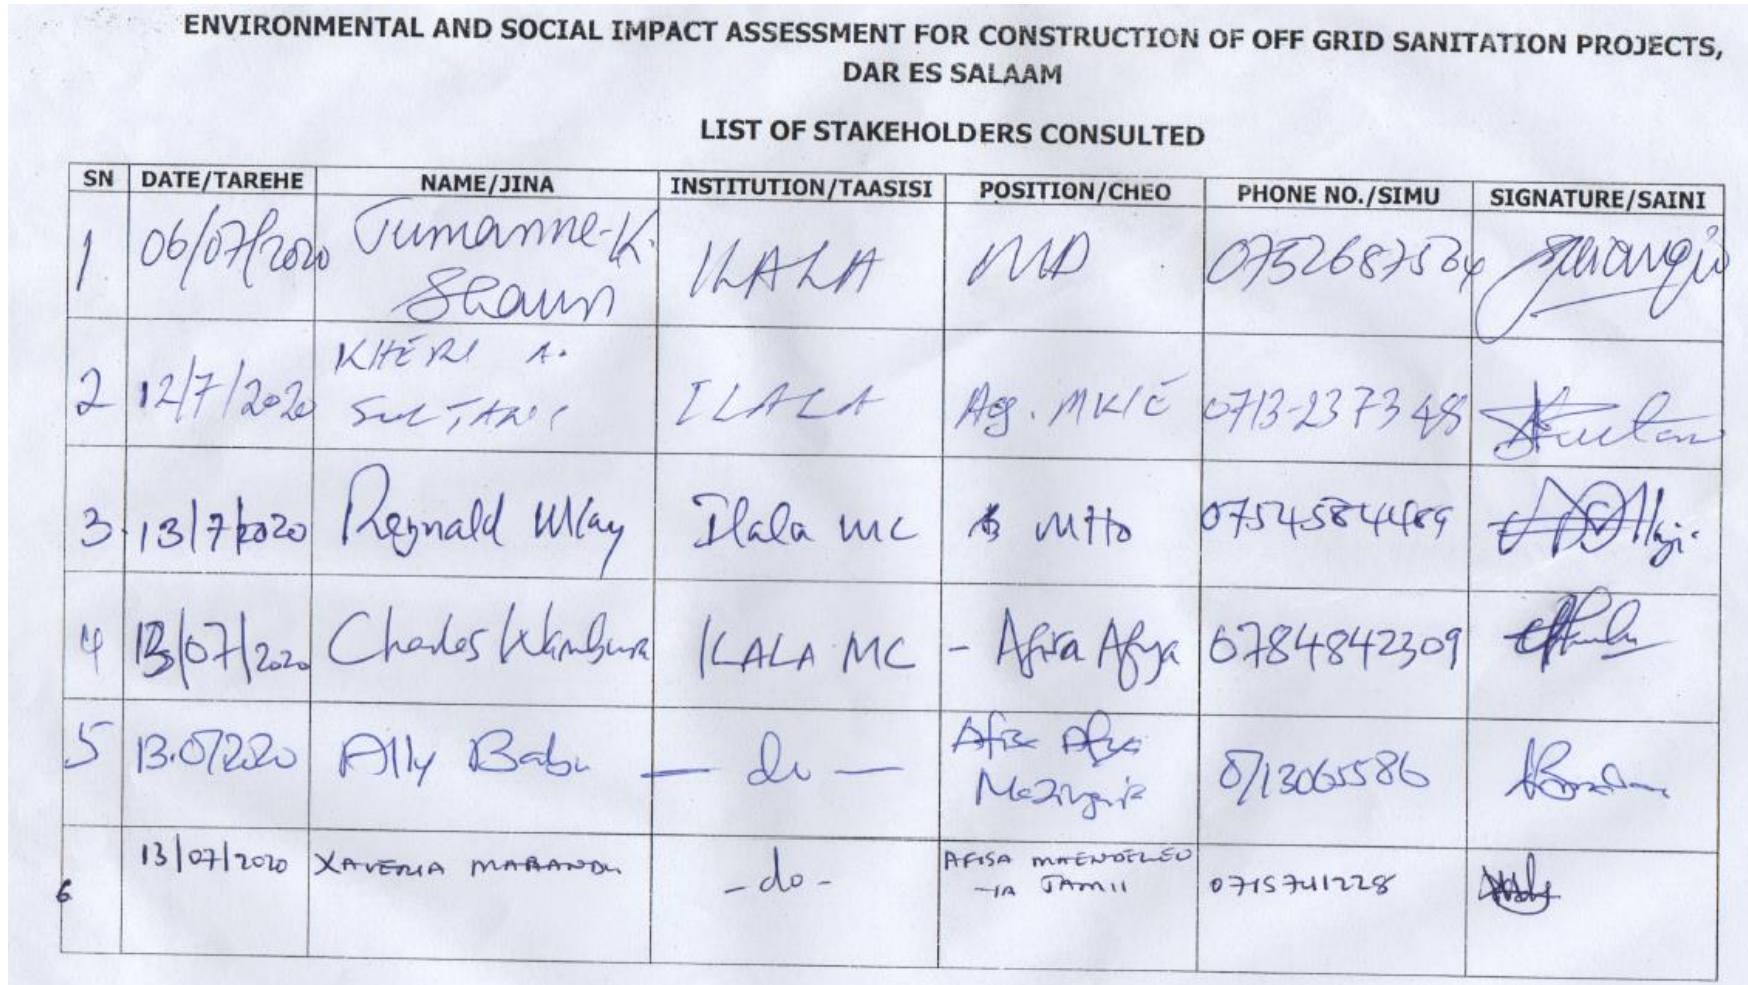 ENVIRONMENTAL AND SOCIAL IMPACT ASSESSMENT FOR CONSTRUCTION OF OFF GRID SANITATION PROJECTS,
DAR ES SALAAM
LIST OF STAKEHOLDERS CONSULTED
SN DATE/TAREHE NAME/JINA INSTITUTION/TAASISI POSITION/CHEO PHONE NO./SIMU SIGNATURE/SAINI
1 06/07/2020 Jumanne-K. ILALA MD
2 12/7/2020 KHERI A. ILALA Ag. 0713-237348
3. 13/7/2020 Reginald Mlay Ilala MC 0754584489
4 13/07/2020 Charles Wambura ILALA MC - Afisa Afya 0784842309
5 Ally Babu - do - Afisa Afya
Mazingira
6 13/07/2020 XAVERIA - do - AFISA MAENDELEO
YA JAMII 0715741228